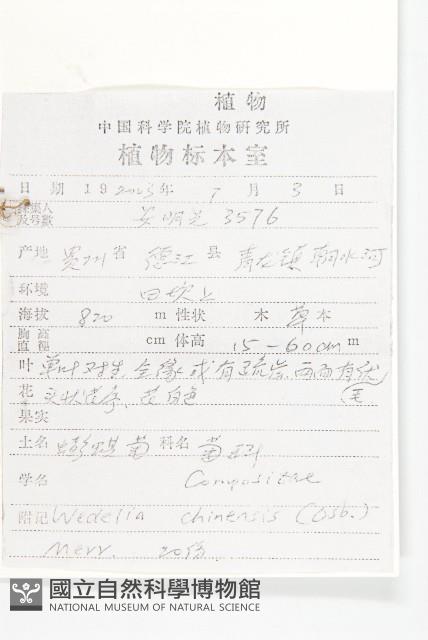 植物
中国科学院植物研究所
植物标本室
日期 19 2003年 7月 3日
采集人及号数 安明先 3576
产地 贵州省 德江县 青龙镇 朝水河
环境 田坎上
海拔 820 m 性状 木 草本
胸高直徑 cm 体高 15-60cm m
叶 单叶对生, 全缘或有疏齿, 两面有伏毛
花 头状花序, 花 白色
果实
土名 蟛蜞菊 科名 菊科
学名 Compositae
附记 Wedelia chinensis (Osb.)
Merr. 20份
國立自然科學博物館
NATIONAL MUSEUM OF NATURAL SCIENCE